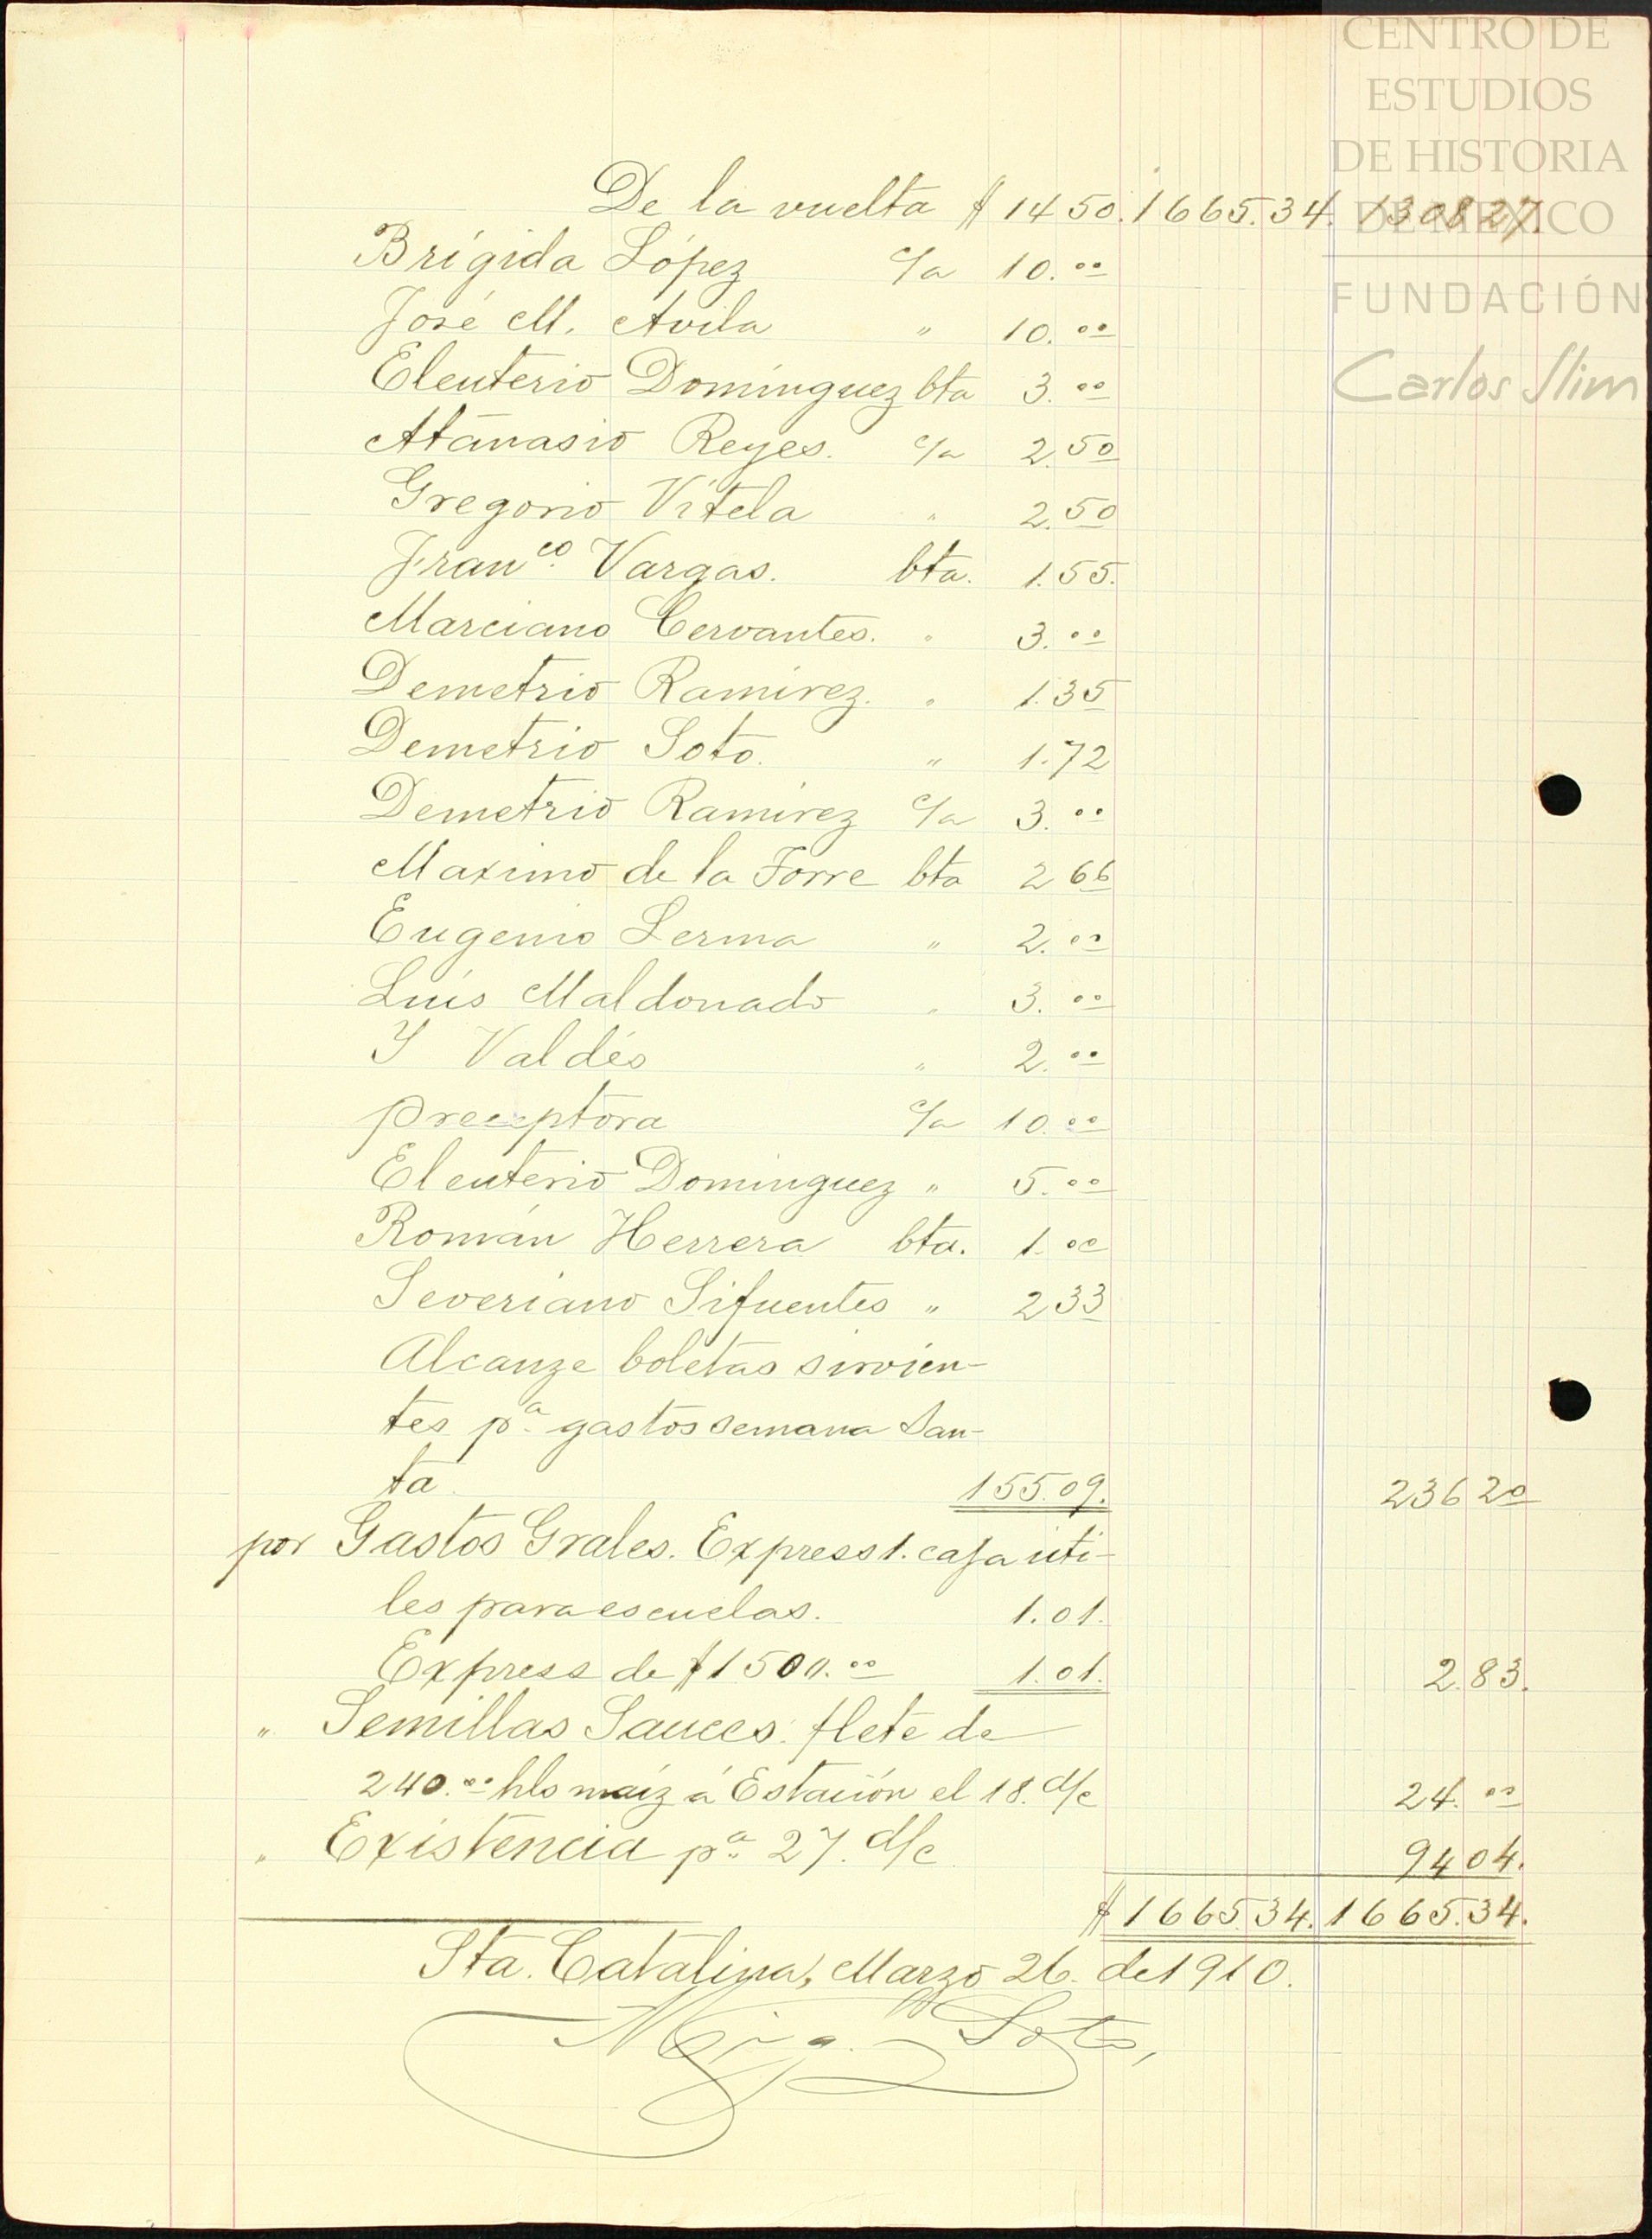 CENTRO DE
ESTUDIOS
DE HISTORIA
DE MÉXICO
FUNDACIÓN
Carlos Slim
De la vuelta $ 14 50. 1665.34. 1308 27.
Brígida López c/a 10.00
José M. Avila " 10.00
Eleuterio Domínguez bta 3.00
Atanasio Reyes. c/a 2.50
Gregorio Vitela " 2.50
Franco. Vargas. bta. 1.55.
Marciano Cervantes. " 3.00
Demetrio Ramírez. " 1.35
Demetrio Soto. " 1.72
Demetrio Ramírez c/a 3.00
Maximo de la Torre bta 2 66
Eugenio Lerma " 2.00
Luis Maldonado " 3.00
Y Valdés " 2.00
Preceptora c/a 10.00
Eleuterio Dominguez " 5.00
Román Herrera bta. 1.00
Severiano Sifuentes " 2 33
Alcanze boletas sirvien-
tes pa. gastos semana San-
ta. 155.09. 236 20
por Gastos Grales. Express 1. caja úti-
les para escuelas. 1.01.
Express de $1500.00 1.01. 2.83.
" Semillas Sauces: flete de
240.00 hls maíz á Estación el 18. d/c 24.00
" Existencia pa. 27. d/c 94 04.
$ 1665 34. 1665.34.
Sta. Catalina, Marzo 26. de 1910.
Soto,